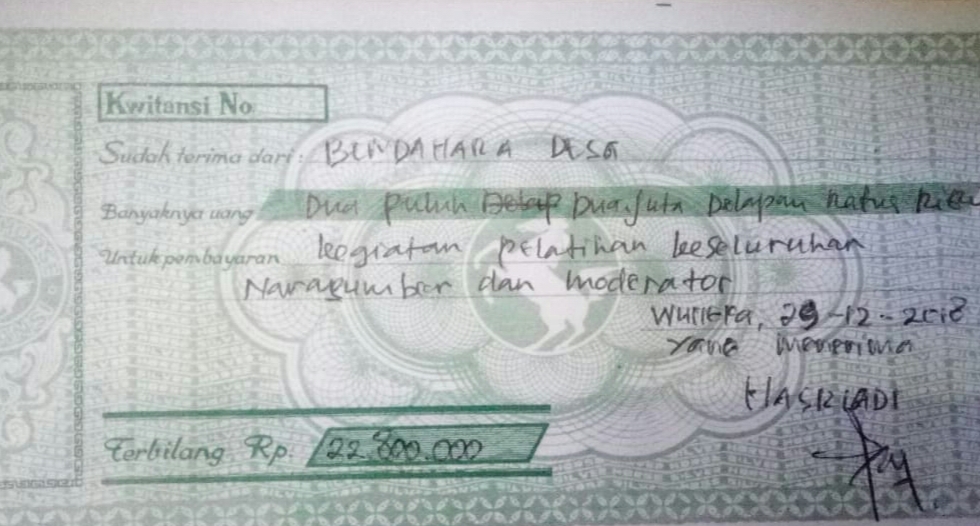 Kwitansi No
Sudah terima dari : BENDAHARA DESA
Banyaknya uang Dua puluh Dua Juta Delapan Ratus Ribu
Untuk pembayaran kegiatan pelatihan keseluruhan
Narasumber dan moderator
29-12-2018
yang menerima
HASRIADI
Terbilang Rp. 22.800.000